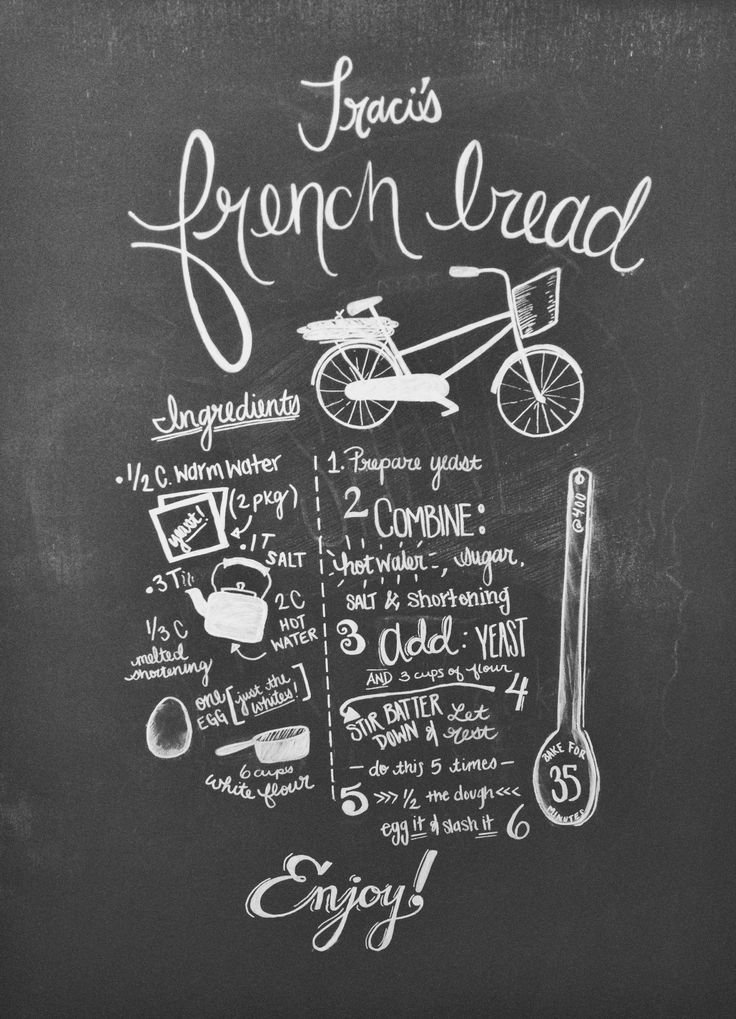 Traci's
french bread
Ingredients
• 1/2 C. warm water
yeast!
(2 pkg)
• 1 T
SALT
• 3 T
1/3 C
melted
shortening
2 C
HOT
WATER
one
EGG [just the
whites!]
6 cups
white flour
1. Prepare yeast
2 COMBINE:
hot water, sugar,
SALT & shortening
3 add: YEAST
AND 3 cups of flour
4
STIR BATTER
DOWN & Let
rest
— do this 5 times —
5 >>> 1/2 the dough <<<
egg it & slash it 6
@400
BAKE FOR
35
MINUTES
Enjoy!